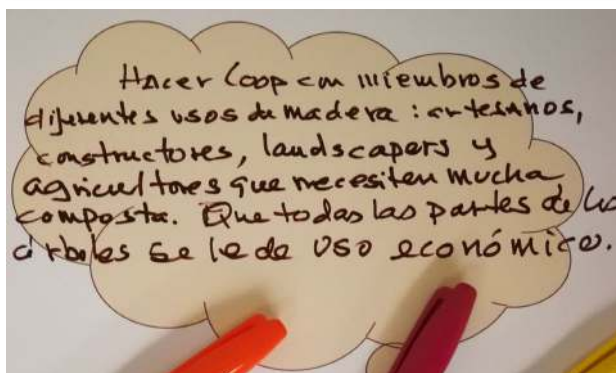 Hacer Loop con miembros de
diferentes usos de madera: artesanos,
constructores, landscapers y
agricultores que necesiten mucha
composta. Que todas las partes de los
árboles se le de uso económico.